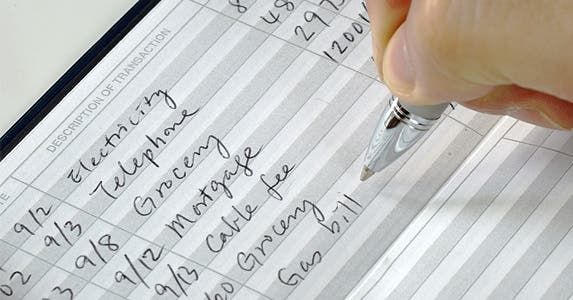 DESCRIPTION OF TRANSACTION
9/2 Electricity
9/3 Telephone
9/8 Grocery
9/12 Mortgage
02 9/13 Cable fee
Grocery
Gas bill
8
48
297
1200